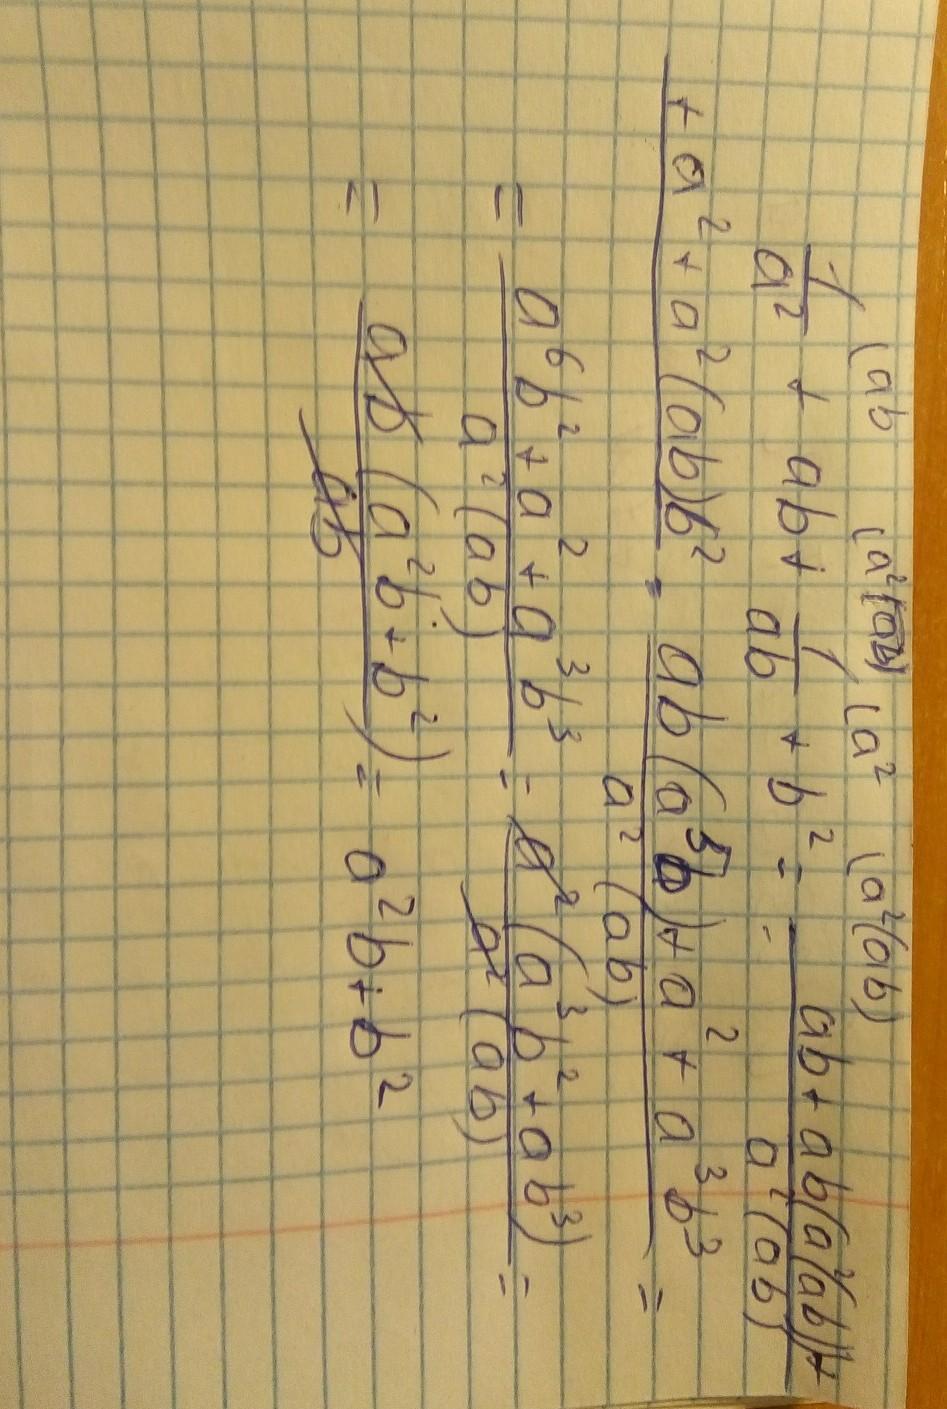 (ab (a²(ab) (a² (a²(ab)
1/a² + ab + 1/ab + b² = (ab + ab(a²(ab)) +)/(a²(ab))
+ a² + a²(ab)b² = (ab(a⁵b) + a² + a³b³)/(a²(ab)) =
= (a⁶b² + a² + a³b³)/(a²(ab)) = (a²(a³b² + ab³))/(a²(ab)) =
= (ab(a²b + b²))/(ab) = a²b + b²